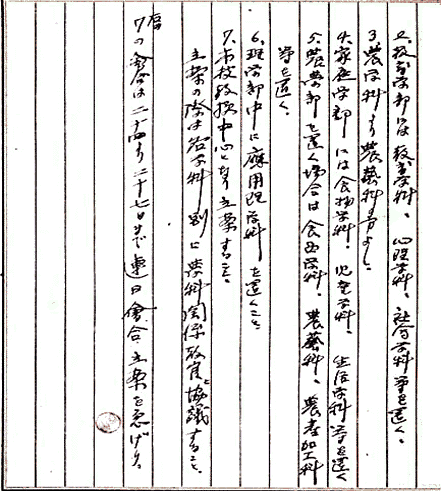 2、教育学部には教育学科、心理学科、社会学科等を置く。
3、農学科より農藝科を分よし。
4、家庭学部には食物学科、児童学科、生活学科等を置く
5、農学部を置く場合は食品学科、農藝科、農産加工科
等を置く。
6、理学部中に應用理学科を置くこと。
7、本校教授中心となり立案すること。
立案の際は各学科別に学科関係教官と協議すること。
7の會合は二十四より二十七日まで連日會合、立案を急げり。